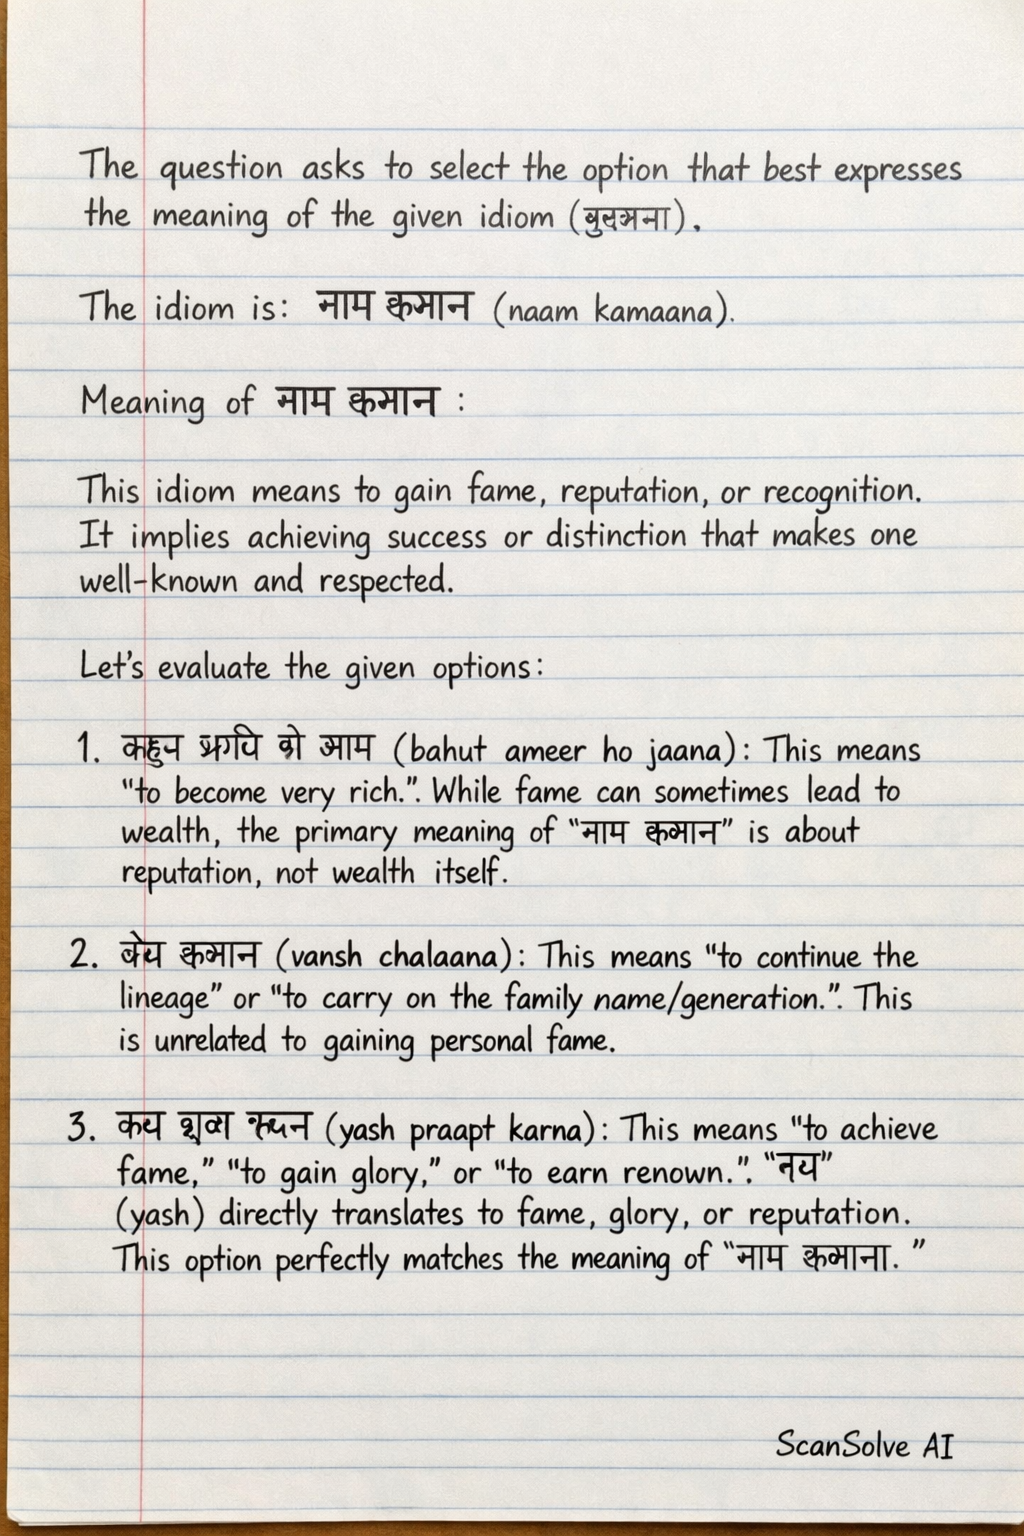 The question asks to select the option that best expresses
the meaning of the given idiom (मुदसना).
The idiom is: नाम कमान (naam kamaana).
Meaning of नाम कमान :
This idiom means to gain fame, reputation, or recognition.
It implies achieving success or distinction that makes one
well-known and respected.
Let's evaluate the given options:
1. (bahut ameer ho jaana): This means
"to become very rich.". While fame can sometimes lead to
wealth, the primary meaning of "नाम कमान" is about
reputation, not wealth itself.
2. कमान (vansh chalaana): This means "to continue the
lineage" or "to carry on the family name/generation.". This
is unrelated to gaining personal fame.
3. (yash praapt karna): This means "to achieve
fame," "to gain glory," or "to earn renown.". "नय"
(yash) directly translates to fame, glory, or reputation.
This option perfectly matches the meaning of "नाम कमाना."
ScanSolve AI